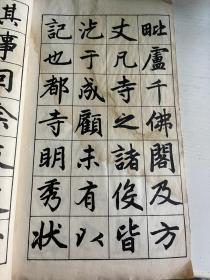 毗盧千佛閣及方
丈凡寺之諸俊皆
汔于成顧未有以
記也都寺明秀狀
其事